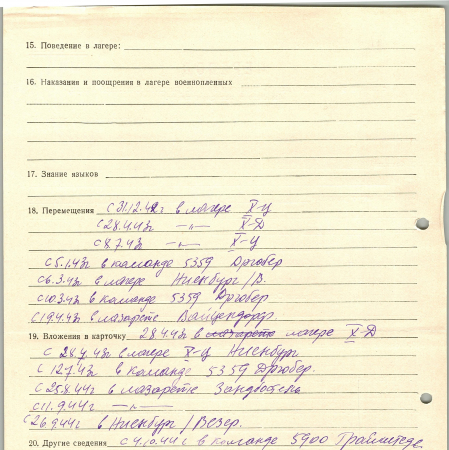 15. Поведение в лагере:
16. Наказания и поощрения в лагере военнопленных
17. Знание языков
18. Перемещения с 31.12.42г в лагере X-Ц
с 28.4.43г —"— X-Д
с 8.7.43г —"— X-Ц
с 5.1.43г в команде 5359 Дрюбер
с 6.3.43г в лагере Ниенбург/В.
с 10.3.43г в команде 5359 Дрюбер
с 19.4.43г в лазарете
19. Вложения в карточку 28.4.43г в лагере X-Д
с 28.4.43г в лагере X-Ц Ниенбург
с 12.7.43г в команде 5359 Дрюбер.
с 25.8.44г в лазарете Зандбостель
с 11.9.44г —"—
с 26.9.44г в Ниенбург/Везер.
20. Другие сведения с 4.10.44г в команде 5900